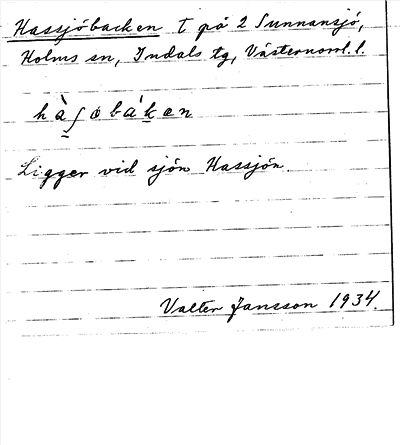 Hassjöbacken t på 2 Sunnansjö,
Holms sn, Indals tg, Västernorrl. l.
hàʃöbákæn
Ligger vid sjön Hassjön.
Valter Jansson 1934.